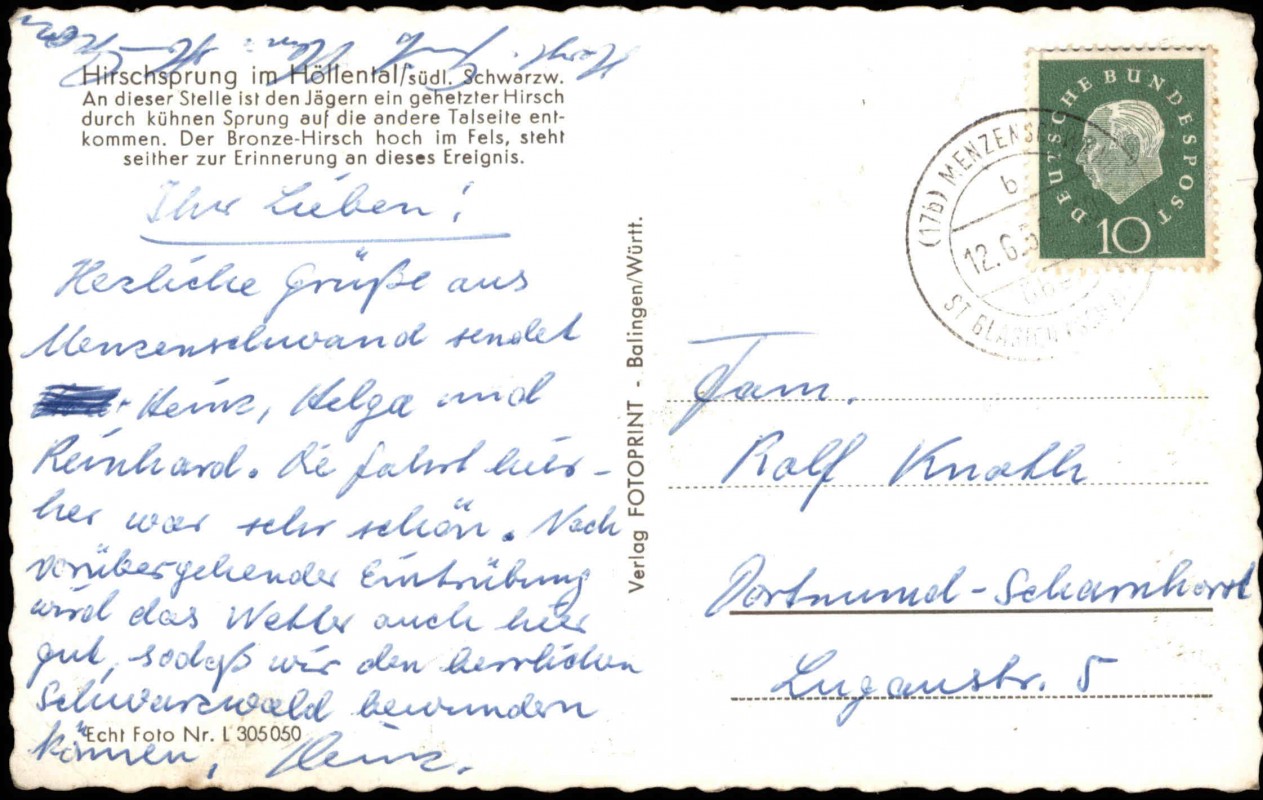 Hirschsprung im Höllental/südl. Schwarzw.
An dieser Stelle ist den Jägern ein gehetzter Hirsch
durch kühnen Sprung auf die andere Talseite ent-
kommen. Der Bronze-Hirsch hoch im Fels, steht
seither zur Erinnerung an dieses Ereignis.
Ihr Lieben!
Herzliche Grüße aus
Menzenschwand sendet
Heinz, Helga und
Reinhard. Die Fahrt hier-
her war sehr schön. Nach
vorübergehender Eintrübung
wird das Wetter auch hier
gut, sodaß wir den herrlichen
Schwarzwald bewundern
können, Heinz.
Echt Foto Nr. L 305050
Verlag FOTOPRINT - Balingen/Württ.
DEUTSCHE BUNDESPOST
10
(17b) MENZENSCHWAND
b
12.6.5
ST BLASIEN
Fam.
Rolf Knoth
Dortmund-Scharnhorst
Luganstr. 5